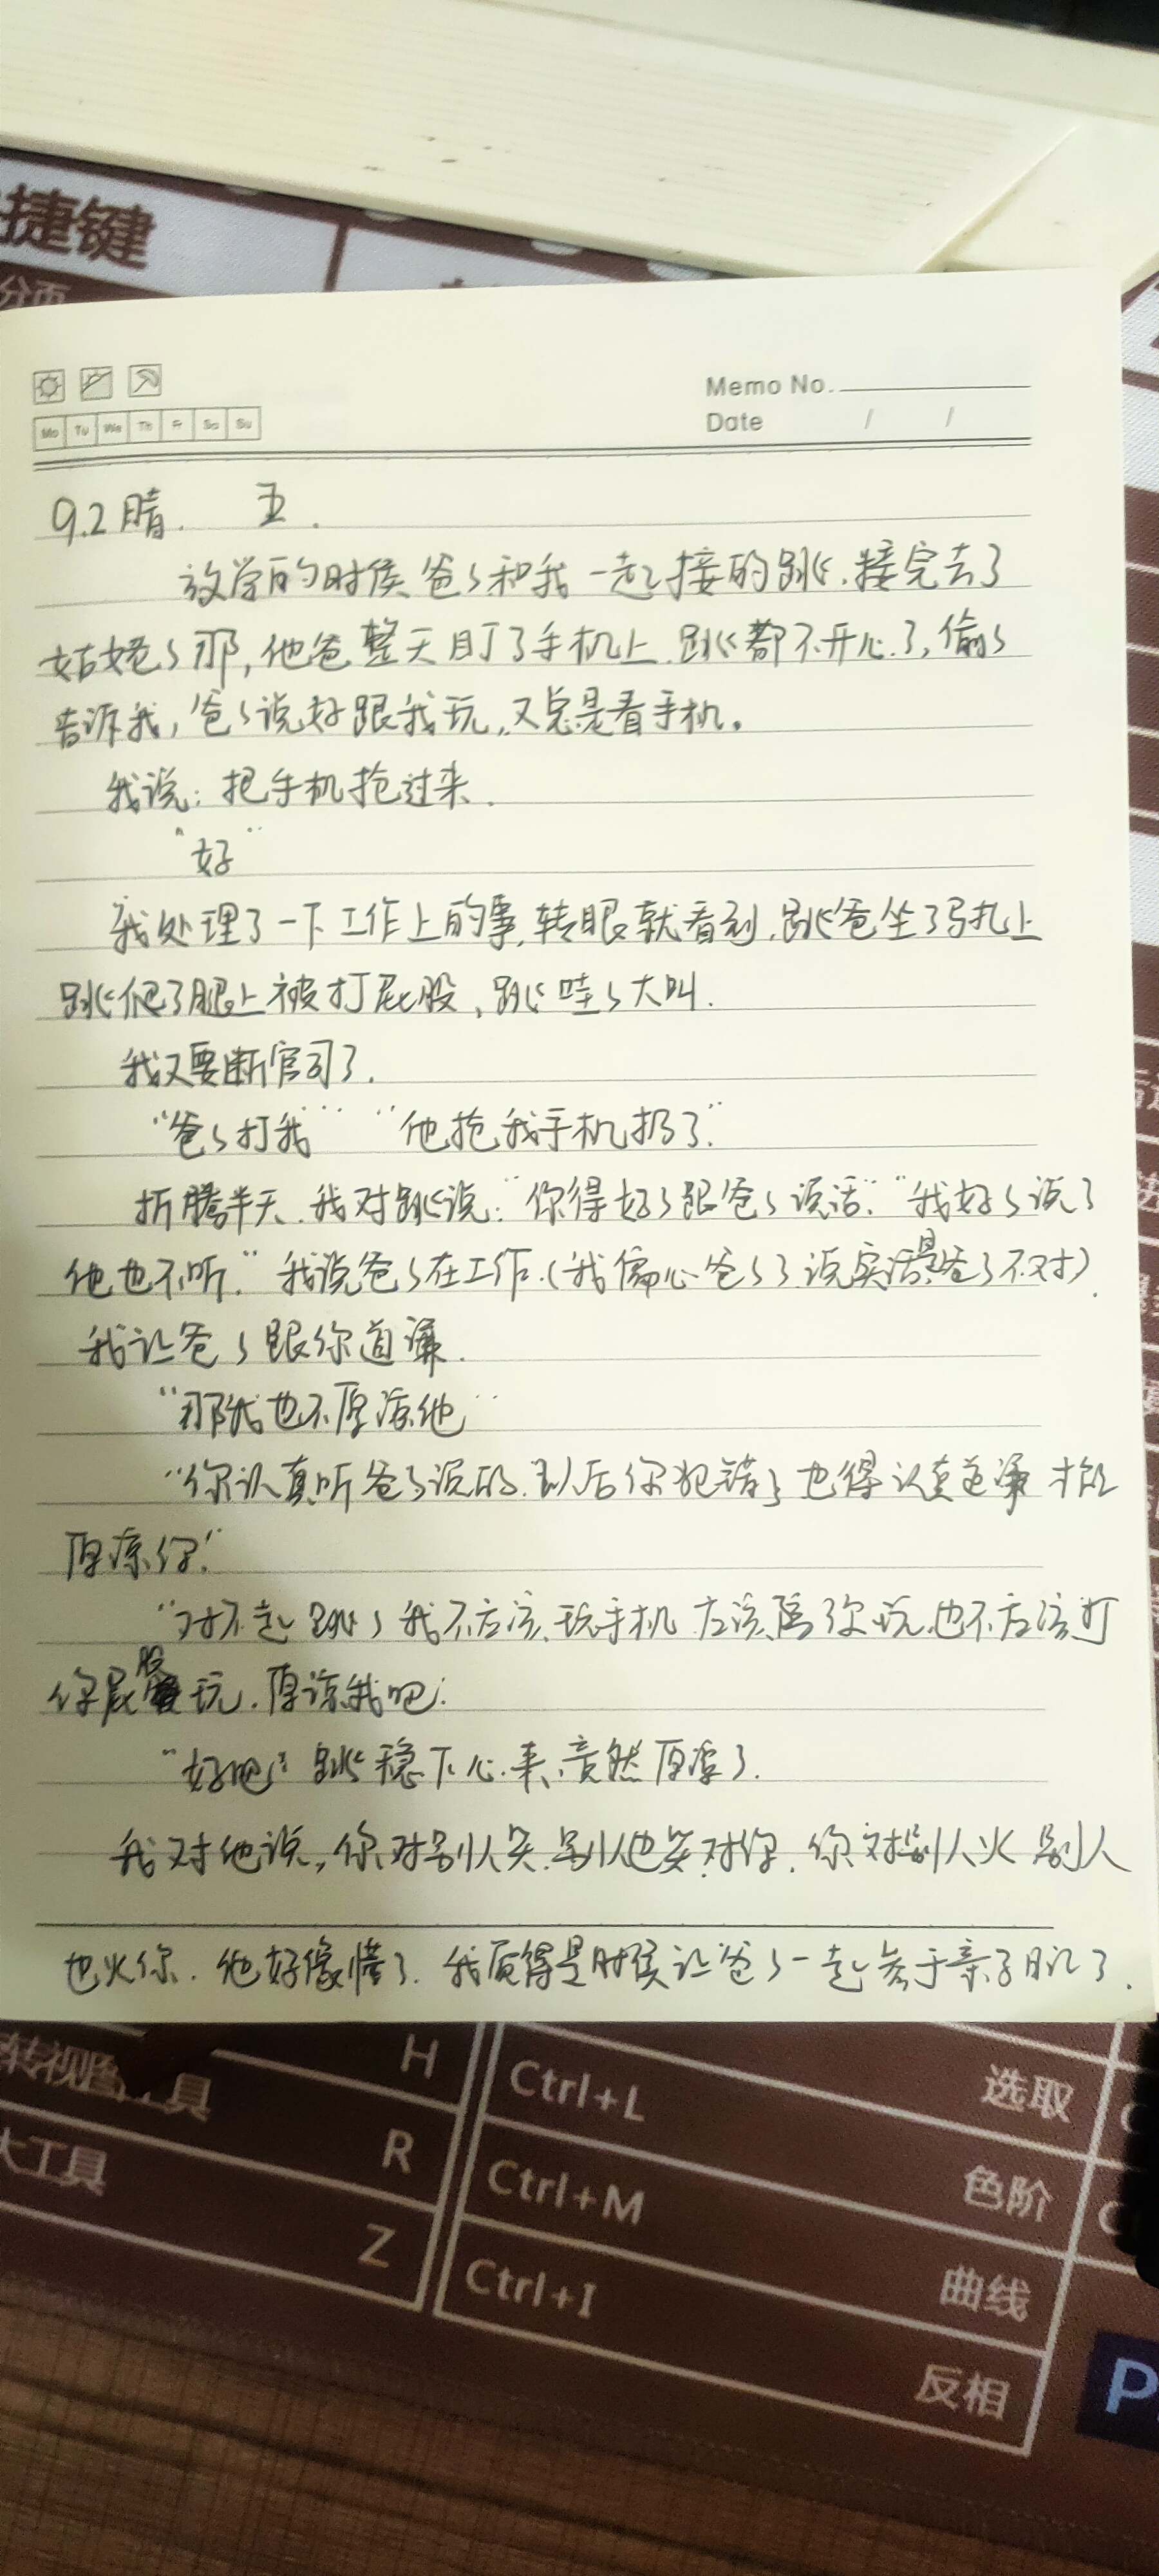 捷键
分页
Memo No.
Date / /
Mo Tu We Th Fr Sa Su
9.2晴. 五.
放学的时候爸々和我一起接的跳々.接完去了
姑姥々那,他爸整天盯了手机上.跳々都不开心了,偷々
告诉我,爸々说好跟我玩,又总是看手机。
我说:把手机抢过来.
"好"
我处理了一下工作上的事,转眼就看到,跳爸坐了马扎上
跳々爬了腿上被打屁股,跳々哇々大叫.
我又要断官司了.
"爸々打我" "他抢我手机扔了."
折腾半天.我对跳々说:"你得好々跟爸々说话." "我好々说了
他也不听." 我说爸々在工作.(我偏心爸々了说实话是爸々不对).
我让爸々跟你道谦.
"那我也不原谅他"
"你认真听爸々说的.以后你犯错了也得认真道谦才能
原谅你."
"对不起跳々我不应该玩手机应该陪你玩.也不应该打
你屁股玩.原谅我吧.
"好吧"跳々稳下心来,竟然原谅了.
我对他说,你对别人笑.别人也笑对你.你对别人火别人
也火你.他好像懂了.我觉得是时候让爸々一起参于亲子日记了.
转视图工具 R
H
大工具 Z
Ctrl+L 选取
Ctrl+M 色阶
Ctrl+I 曲线
反相
P